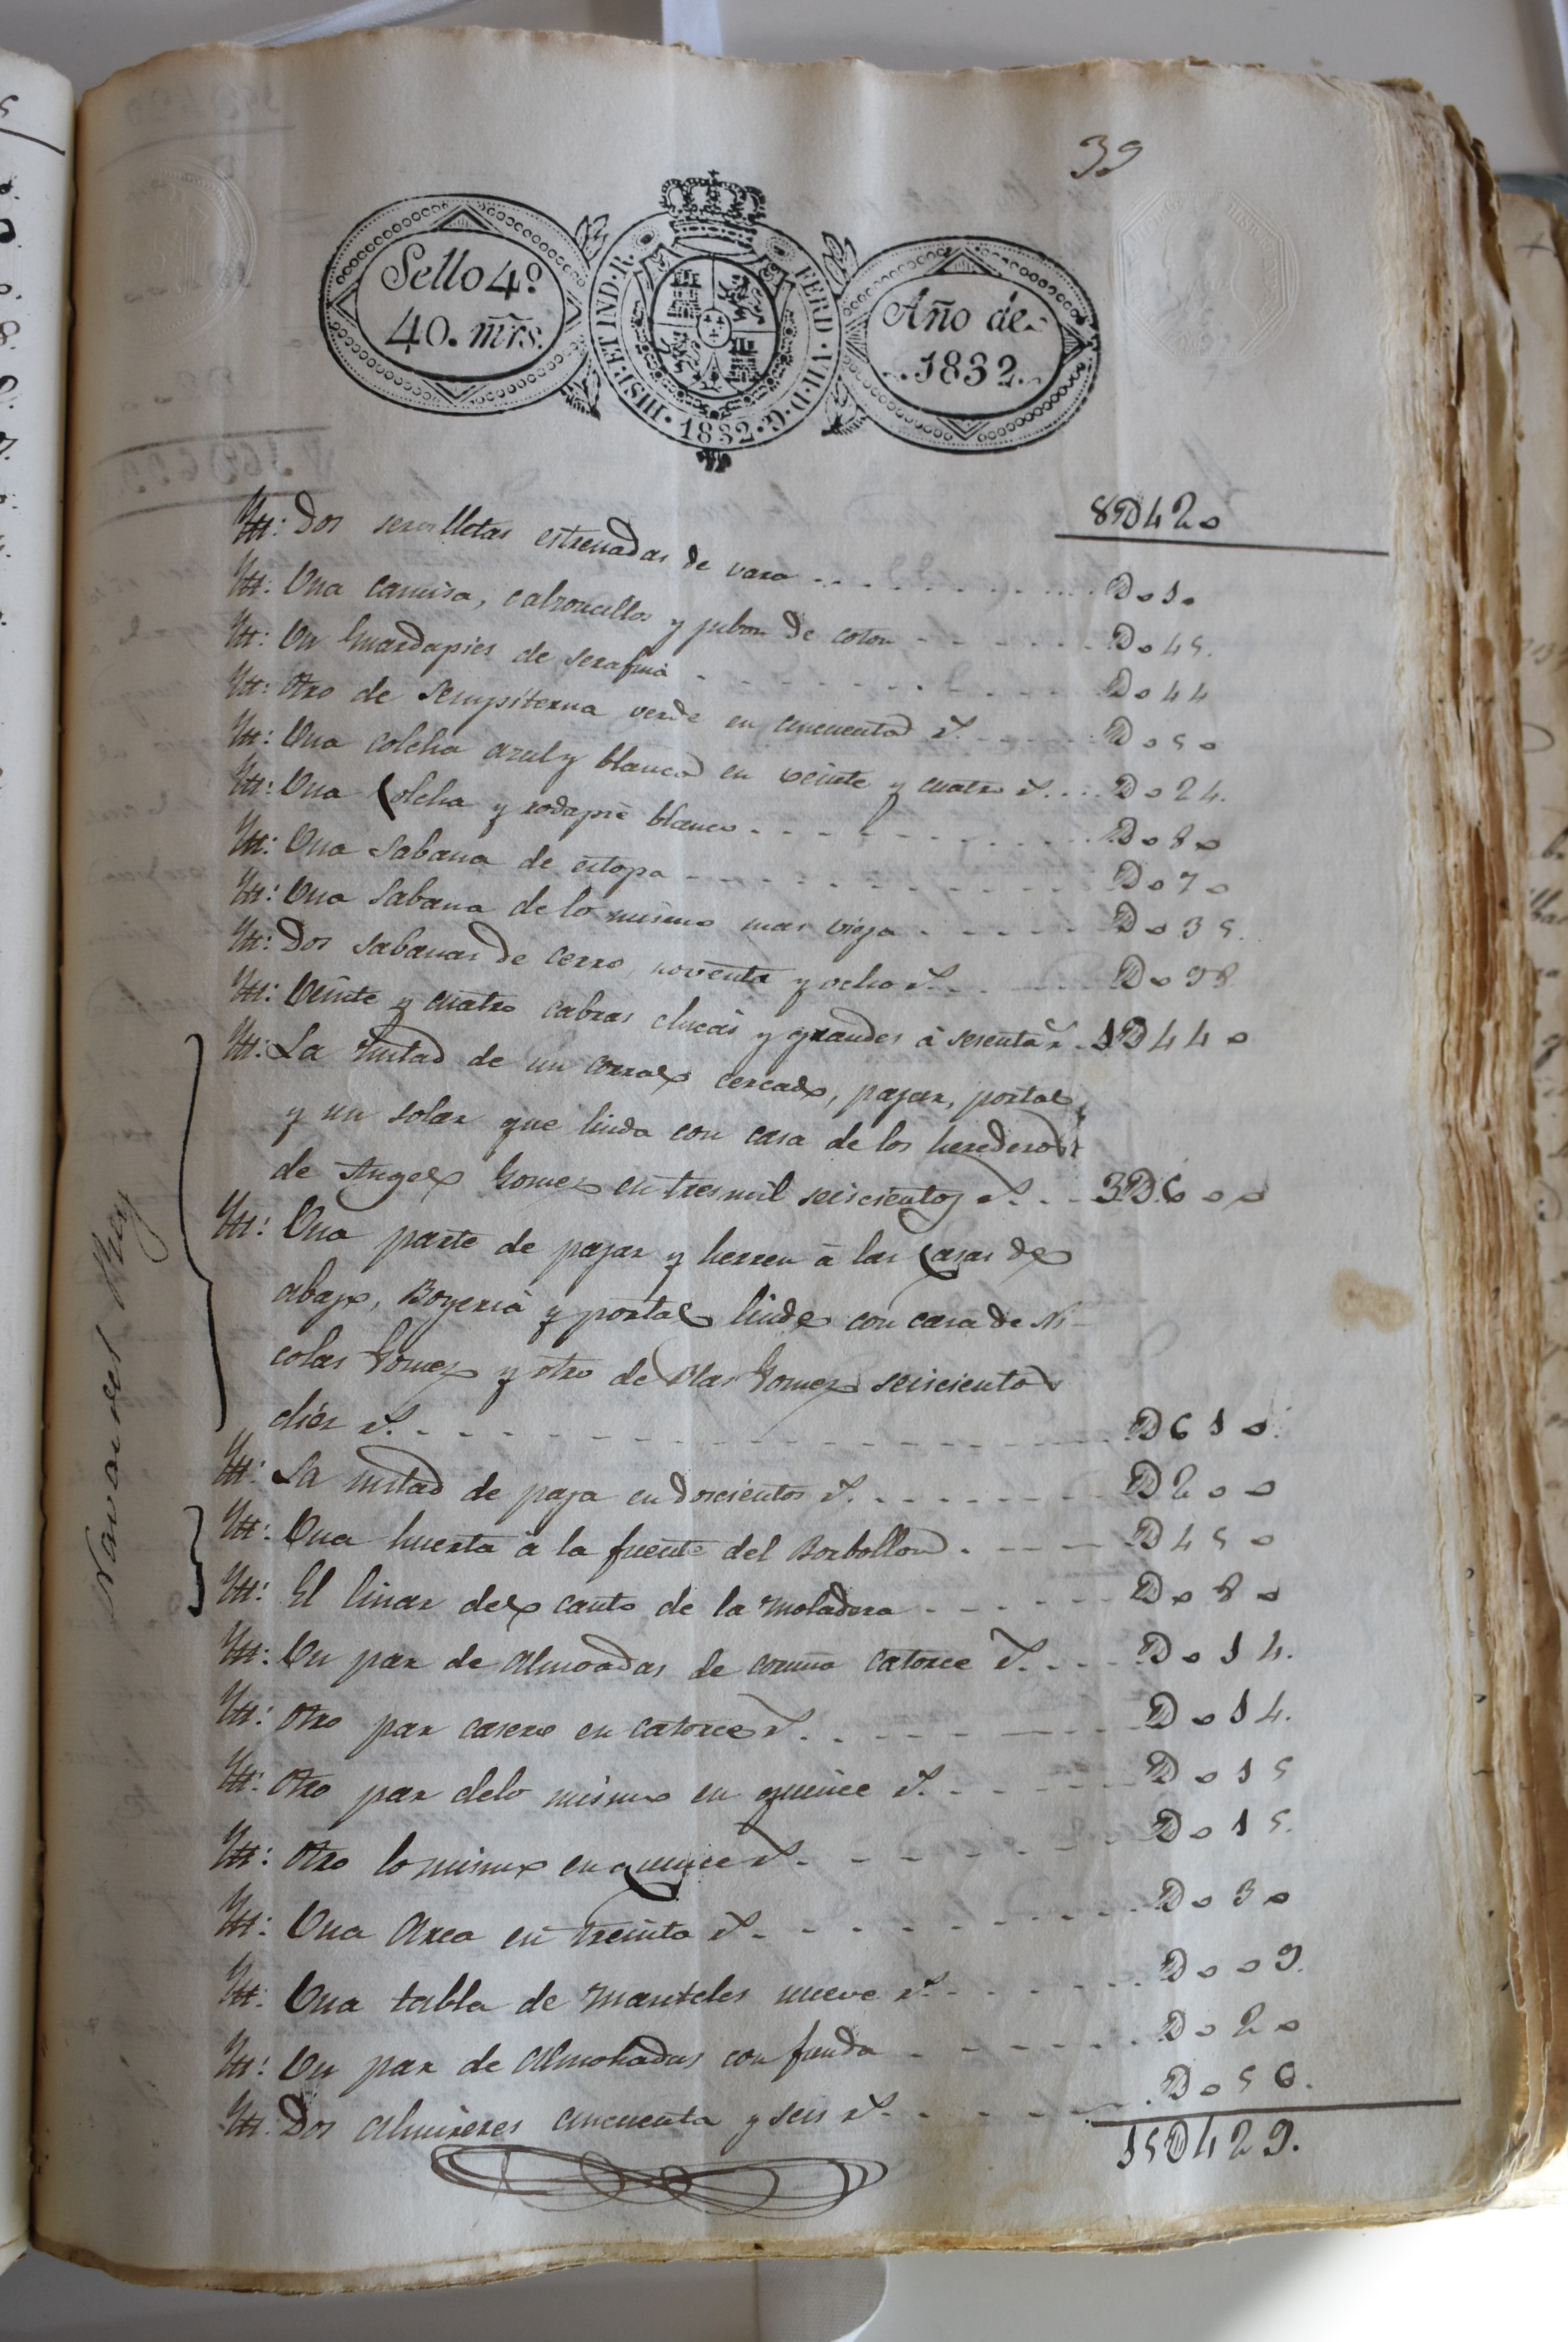 39
Sello 4º
40. mrs.
HISP. ET IND. R.
FERD. VII. D. G.
1832
Año de
1832.
8D420
Ytt: Dos servilletas estrenadas de vara D010
Ytt: Una camisa, calzoncillos y jubon de coton D045.
Ytt: Un Guardapies de serafina D044
Ytt: Otro de Sempiterna verde en cincuenta rs. D050
Ytt: Una colcha azul y blanca en veinte y cuatro rs. D024.
Ytt: Una Colcha y rodapie blanco D080
Ytt: Una Sabana de estopa D070
Ytt: Una Sabana de lo mismo mas vieja D035.
Ytt: Dos Sabanas de cerro, noventa y ocho rs. D098
Ytt: Veinte y cuatro cabras chicas y grandes á sesenta rs. 1D440
Ytt: La mitad de un corral cercado, pajar, portal
y un solar que linda con casa de los herederos
de Angel Gomez en tres mil seiscientos rs. 3D600
Ytt: Una parte de pajar y herren á las Casas de
abajo, Boyeria y portal linde con casa de Ni-
colas Gomez y otro de Blas Gomez seiscientos
diez rs. D610.
Ytt: La mitad de paja en doscientos rs. D200
Ytt: Una huerta á la fuente del Borbollon D450
Ytt: El linar del canto de la Moladera D080
Ytt: Un par de Almoadas de coruña catorce rs. D014.
Ytt: Otro par casero en catorce rs. D014.
Ytt: Otro par delo mismo en quince rs. D015
Ytt: Otro lo mismo en quince rs. D015.
Ytt: Una Arca en treinta rs. D030
Ytt: Una tabla de Manteles nueve rs. D009.
Ytt: Un par de Almohadas con funda D020
Ytt: Dos Almireces cincuenta y seis rs. D056.
15D429.